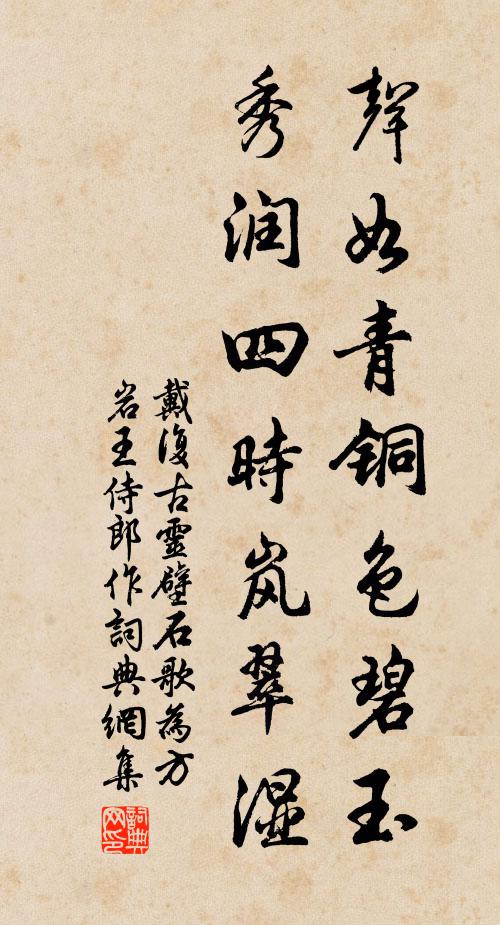 聲如青铜色碧玉
秀润四時岚翠湿
戴復古靈壁石歌為方
岩王侍郎作詞典網集
詞典网印